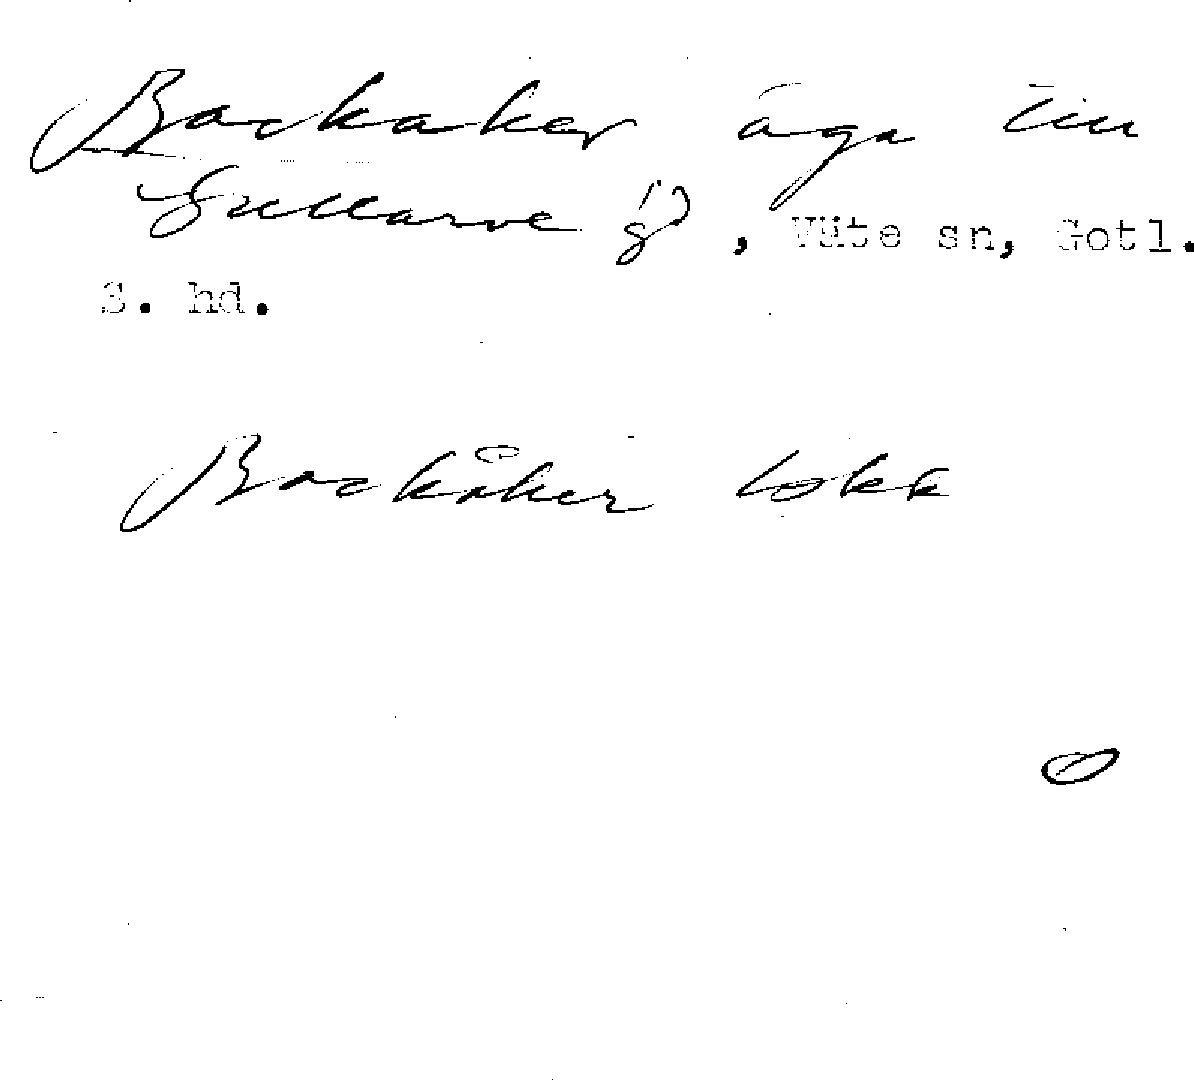 Backaker äga till
Gullarve g), Väte sn, Gotl.
S. hd.
Backåker lokk